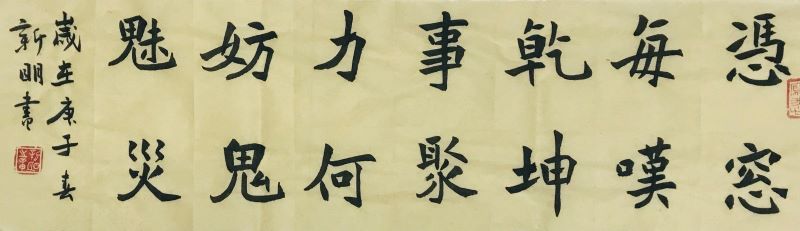 憑窓
每嘆
乾坤
事聚
力何
妨鬼
魅災
歲在庚子春
新明書